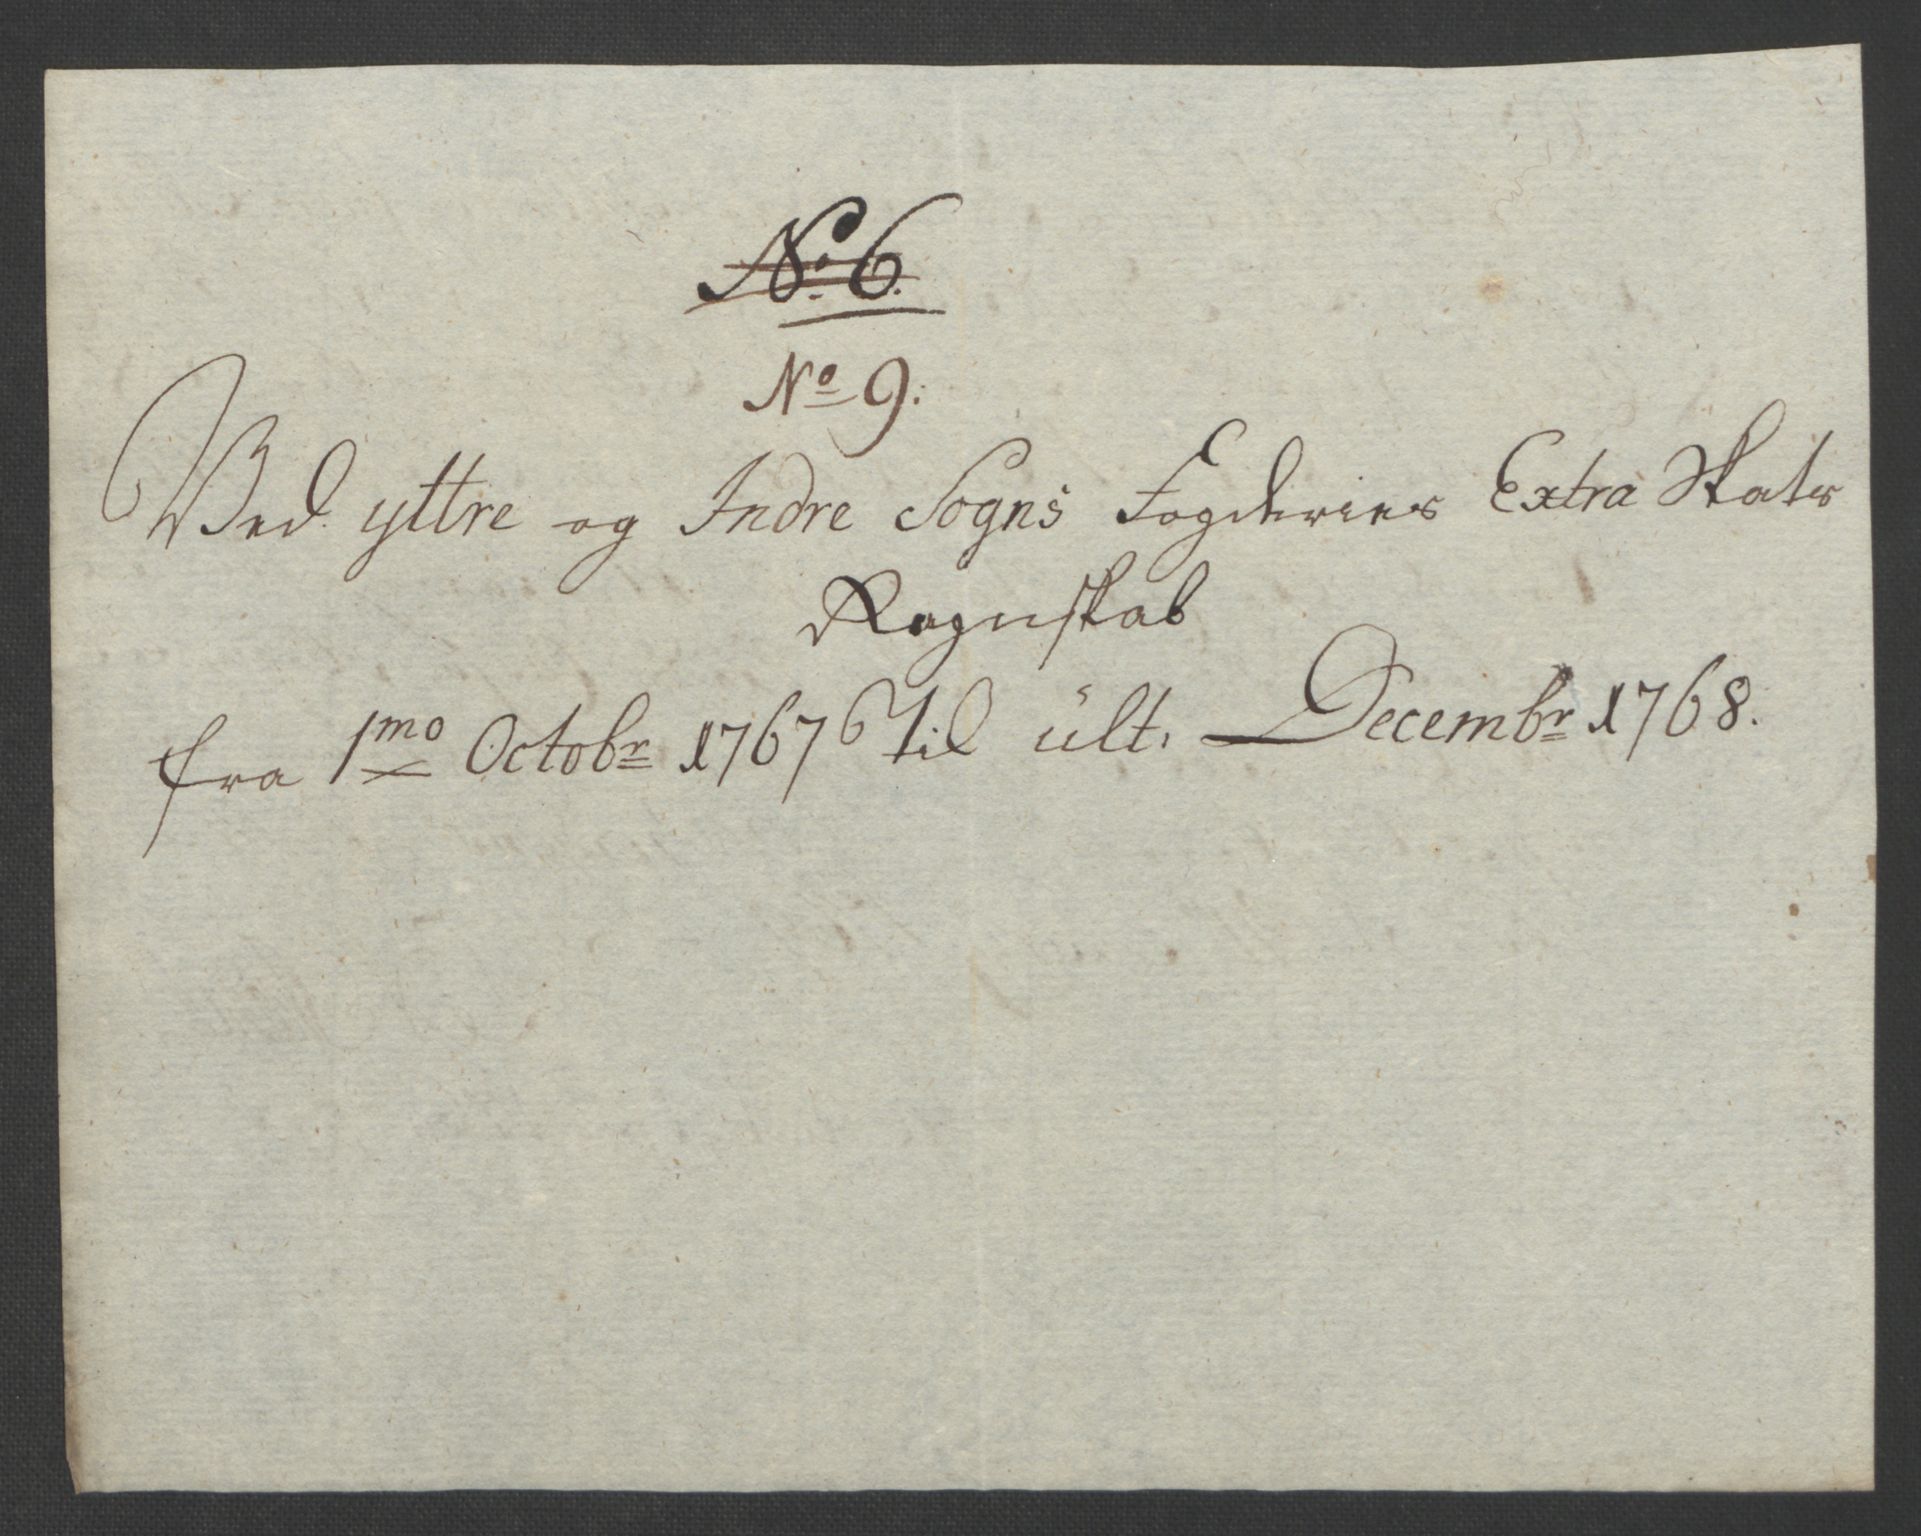 No 6.
No 9.
Ved yttre og Indre Sogns Fogderies Extra Skats
Regnskab
fra 1mo Octobr 1767 til ült. Decembr 1768.